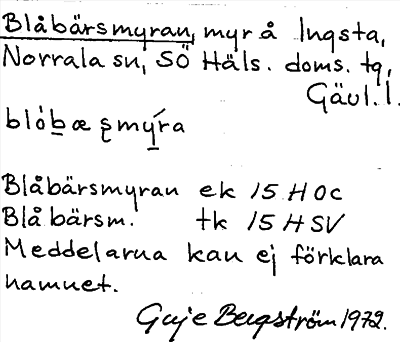 Blåbärsmyran, myr å Ingsta,
Norrala sn, SÖ Häls. doms. tg,
Gävl. l.
blób̲æ ʂmý̲ra
Blåbärsmyran ek 15 H OC
Blåbärsm. tk 15 H SV
Meddelarna kan ej förklara
namnet.
Guje Bergström 1972.